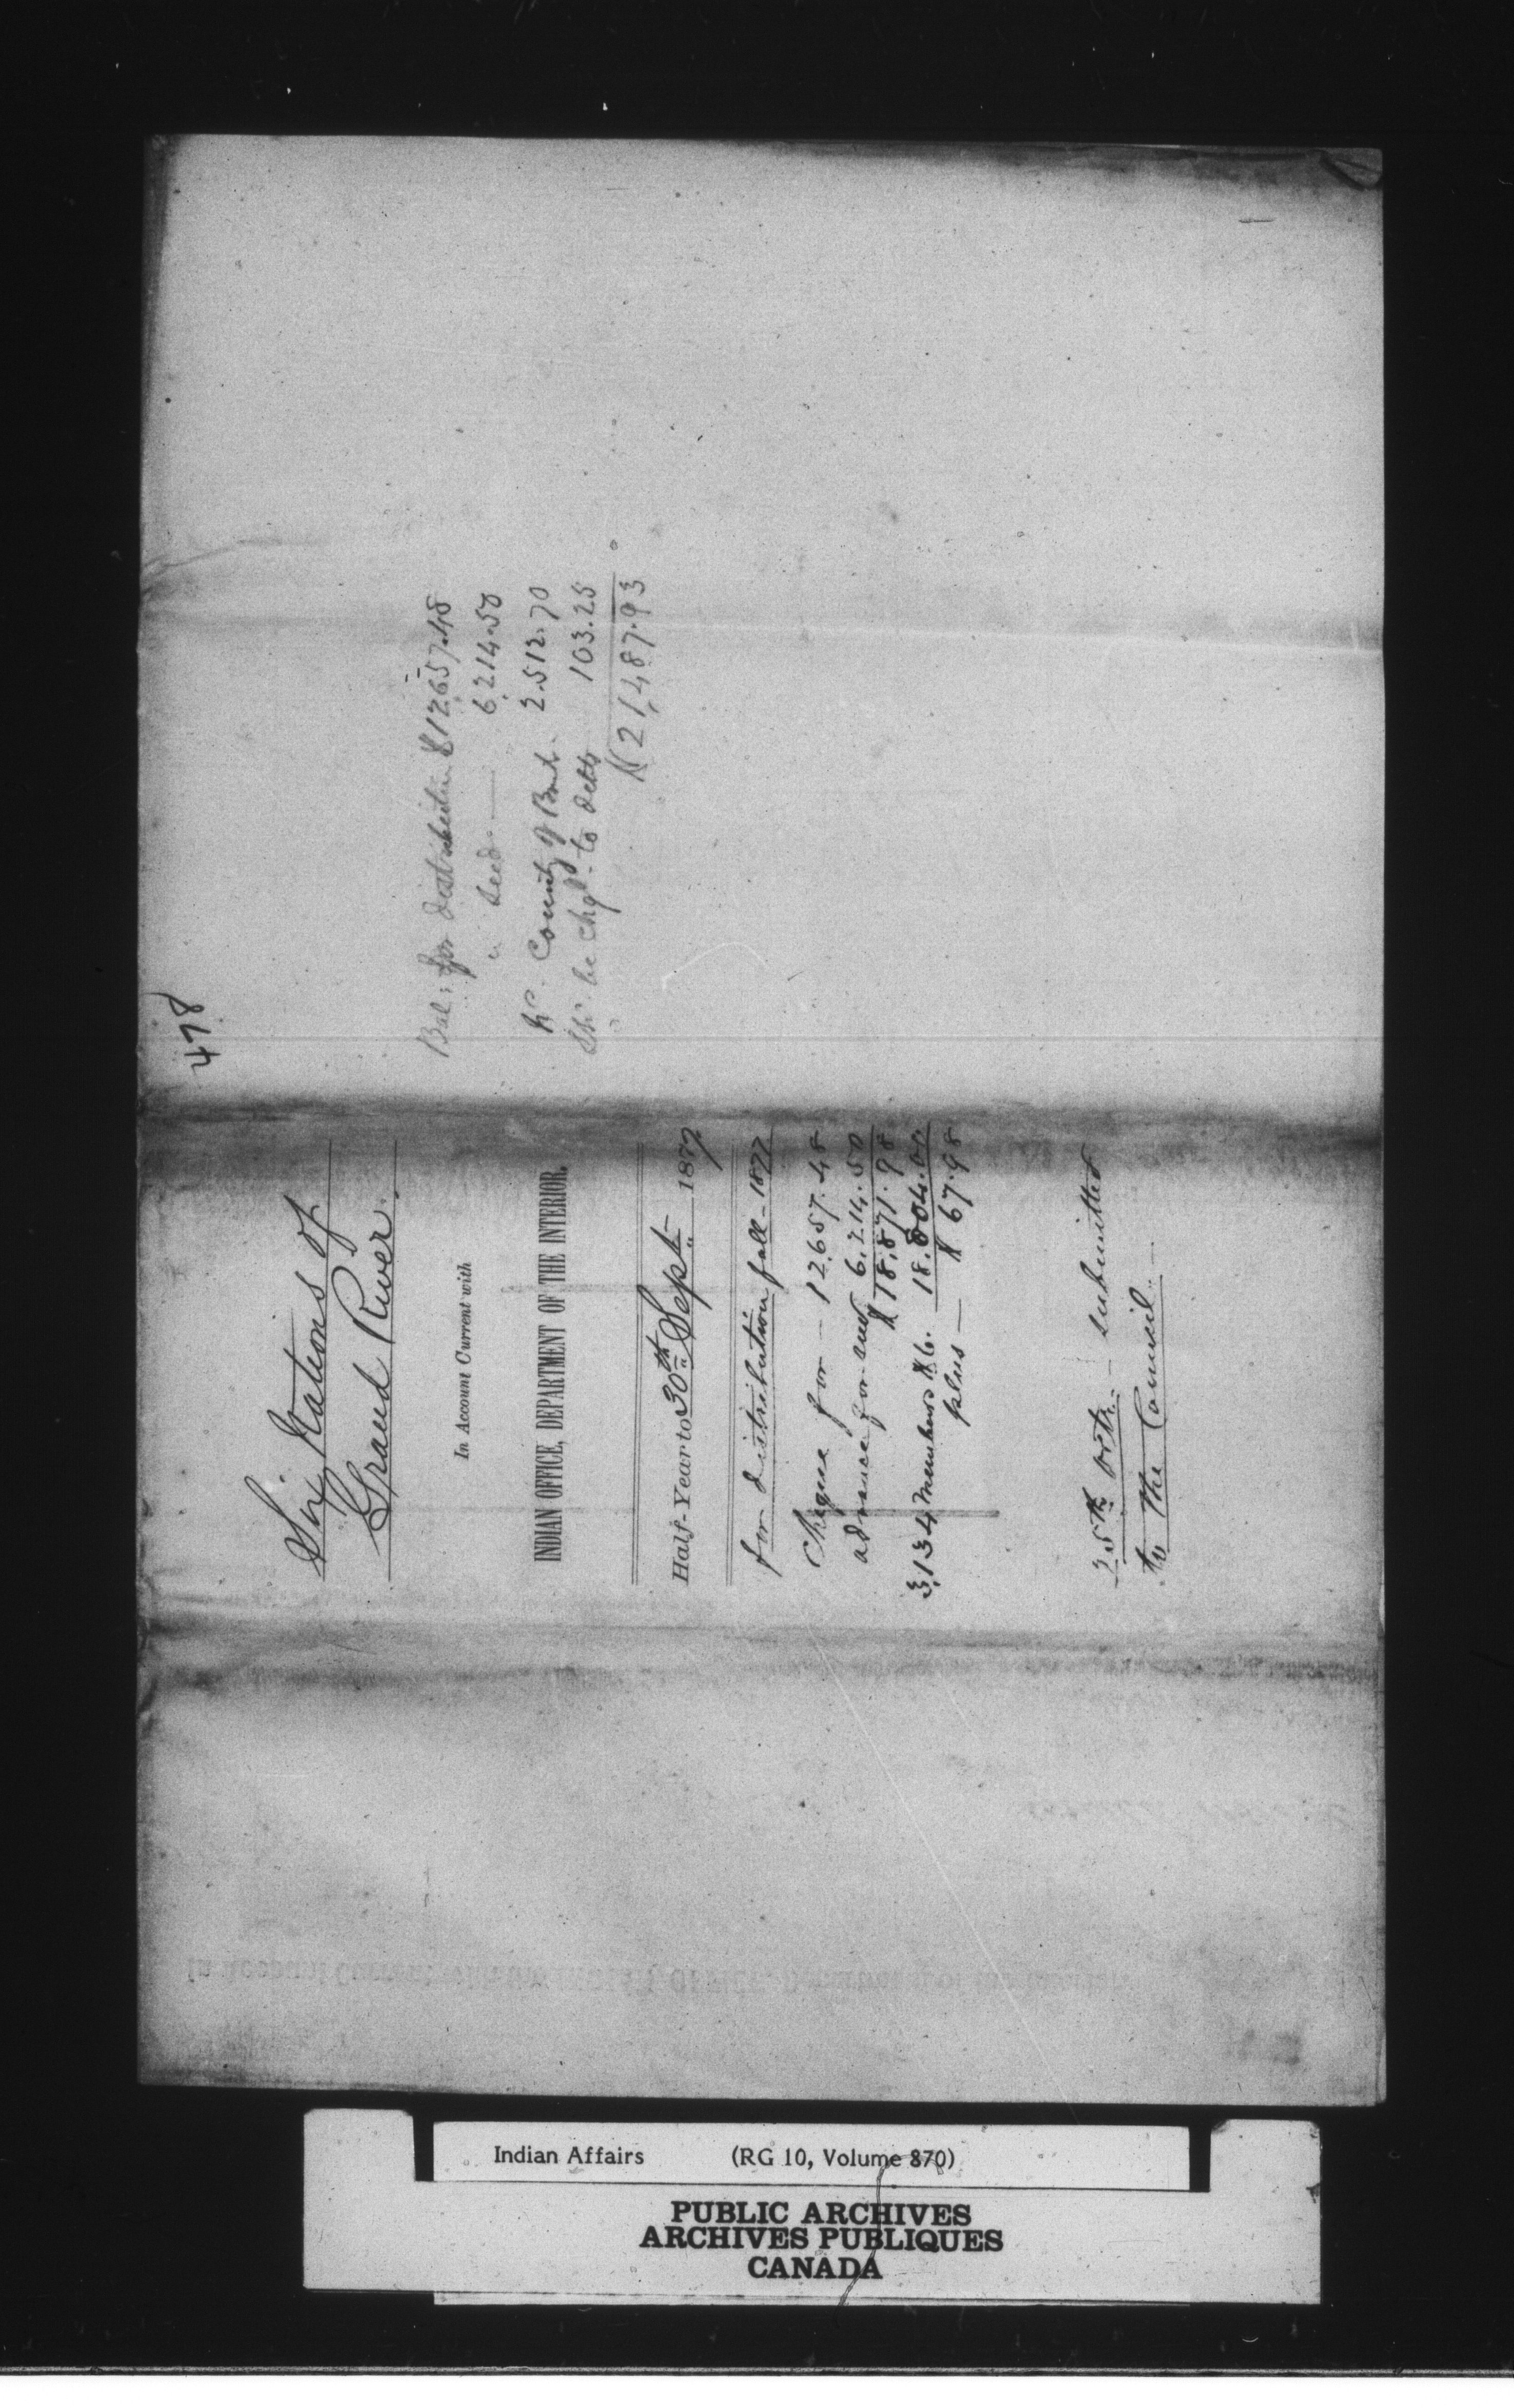 478
Six Nations of
Grand River.
In Account Current with
INDIAN OFFICE, DEPARTMENT OF THE INTERIOR.
Half-Year to 30th Sept 1877
for distribution fall - 1877
Cheque for - 12,657.48
advance for seed 6,214.50
$18,871.98
3,134 Members $6. 18,804.00
plus — $67.98
25th Octr. - submitted
to the Council.
Bal: for distribution $12,657.48
" seed — 6,214.50
County of Brant 2,512.70
be chgd. to debts 103.25
$21,487.93
Indian Affairs (RG 10, Volume 870)
PUBLIC ARCHIVES
ARCHIVES PUBLIQUES
CANADA